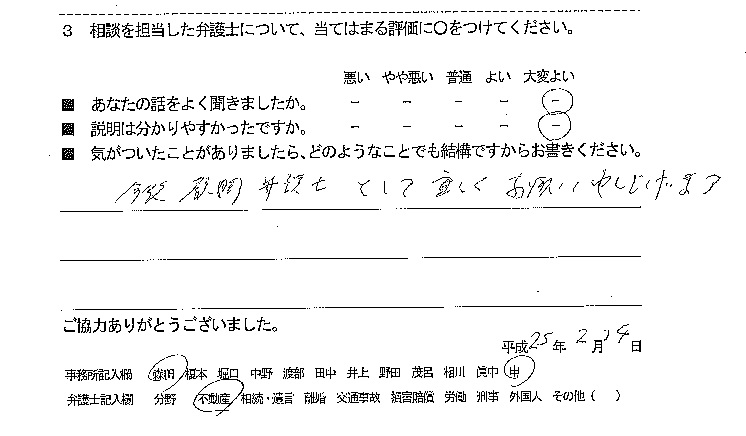 3 相談を担当した弁護士について、当てはまる評価に○をつけてください。
悪い やや悪い 普通 よい 大変よい
■ あなたの話をよく聞きましたか。 － － － － －
■ 説明は分かりやすかったですか。 － － － － －
■ 気がついたことがありましたら、どのようなことでも結構ですからお書きください。
今後 顧問 弁護士 として 宜しく お願い 申し上げます
ご協力ありがとうございました。
平成25年2月14日
事務所記入欄 榎本 堀口 中野 渡部 田中 井上 野田 茂呂 相川 眞中 申
弁護士記入欄 分野 不動産 相続・遺言 離婚 交通事故 損害賠償 労働 刑事 外国人 その他（ ）